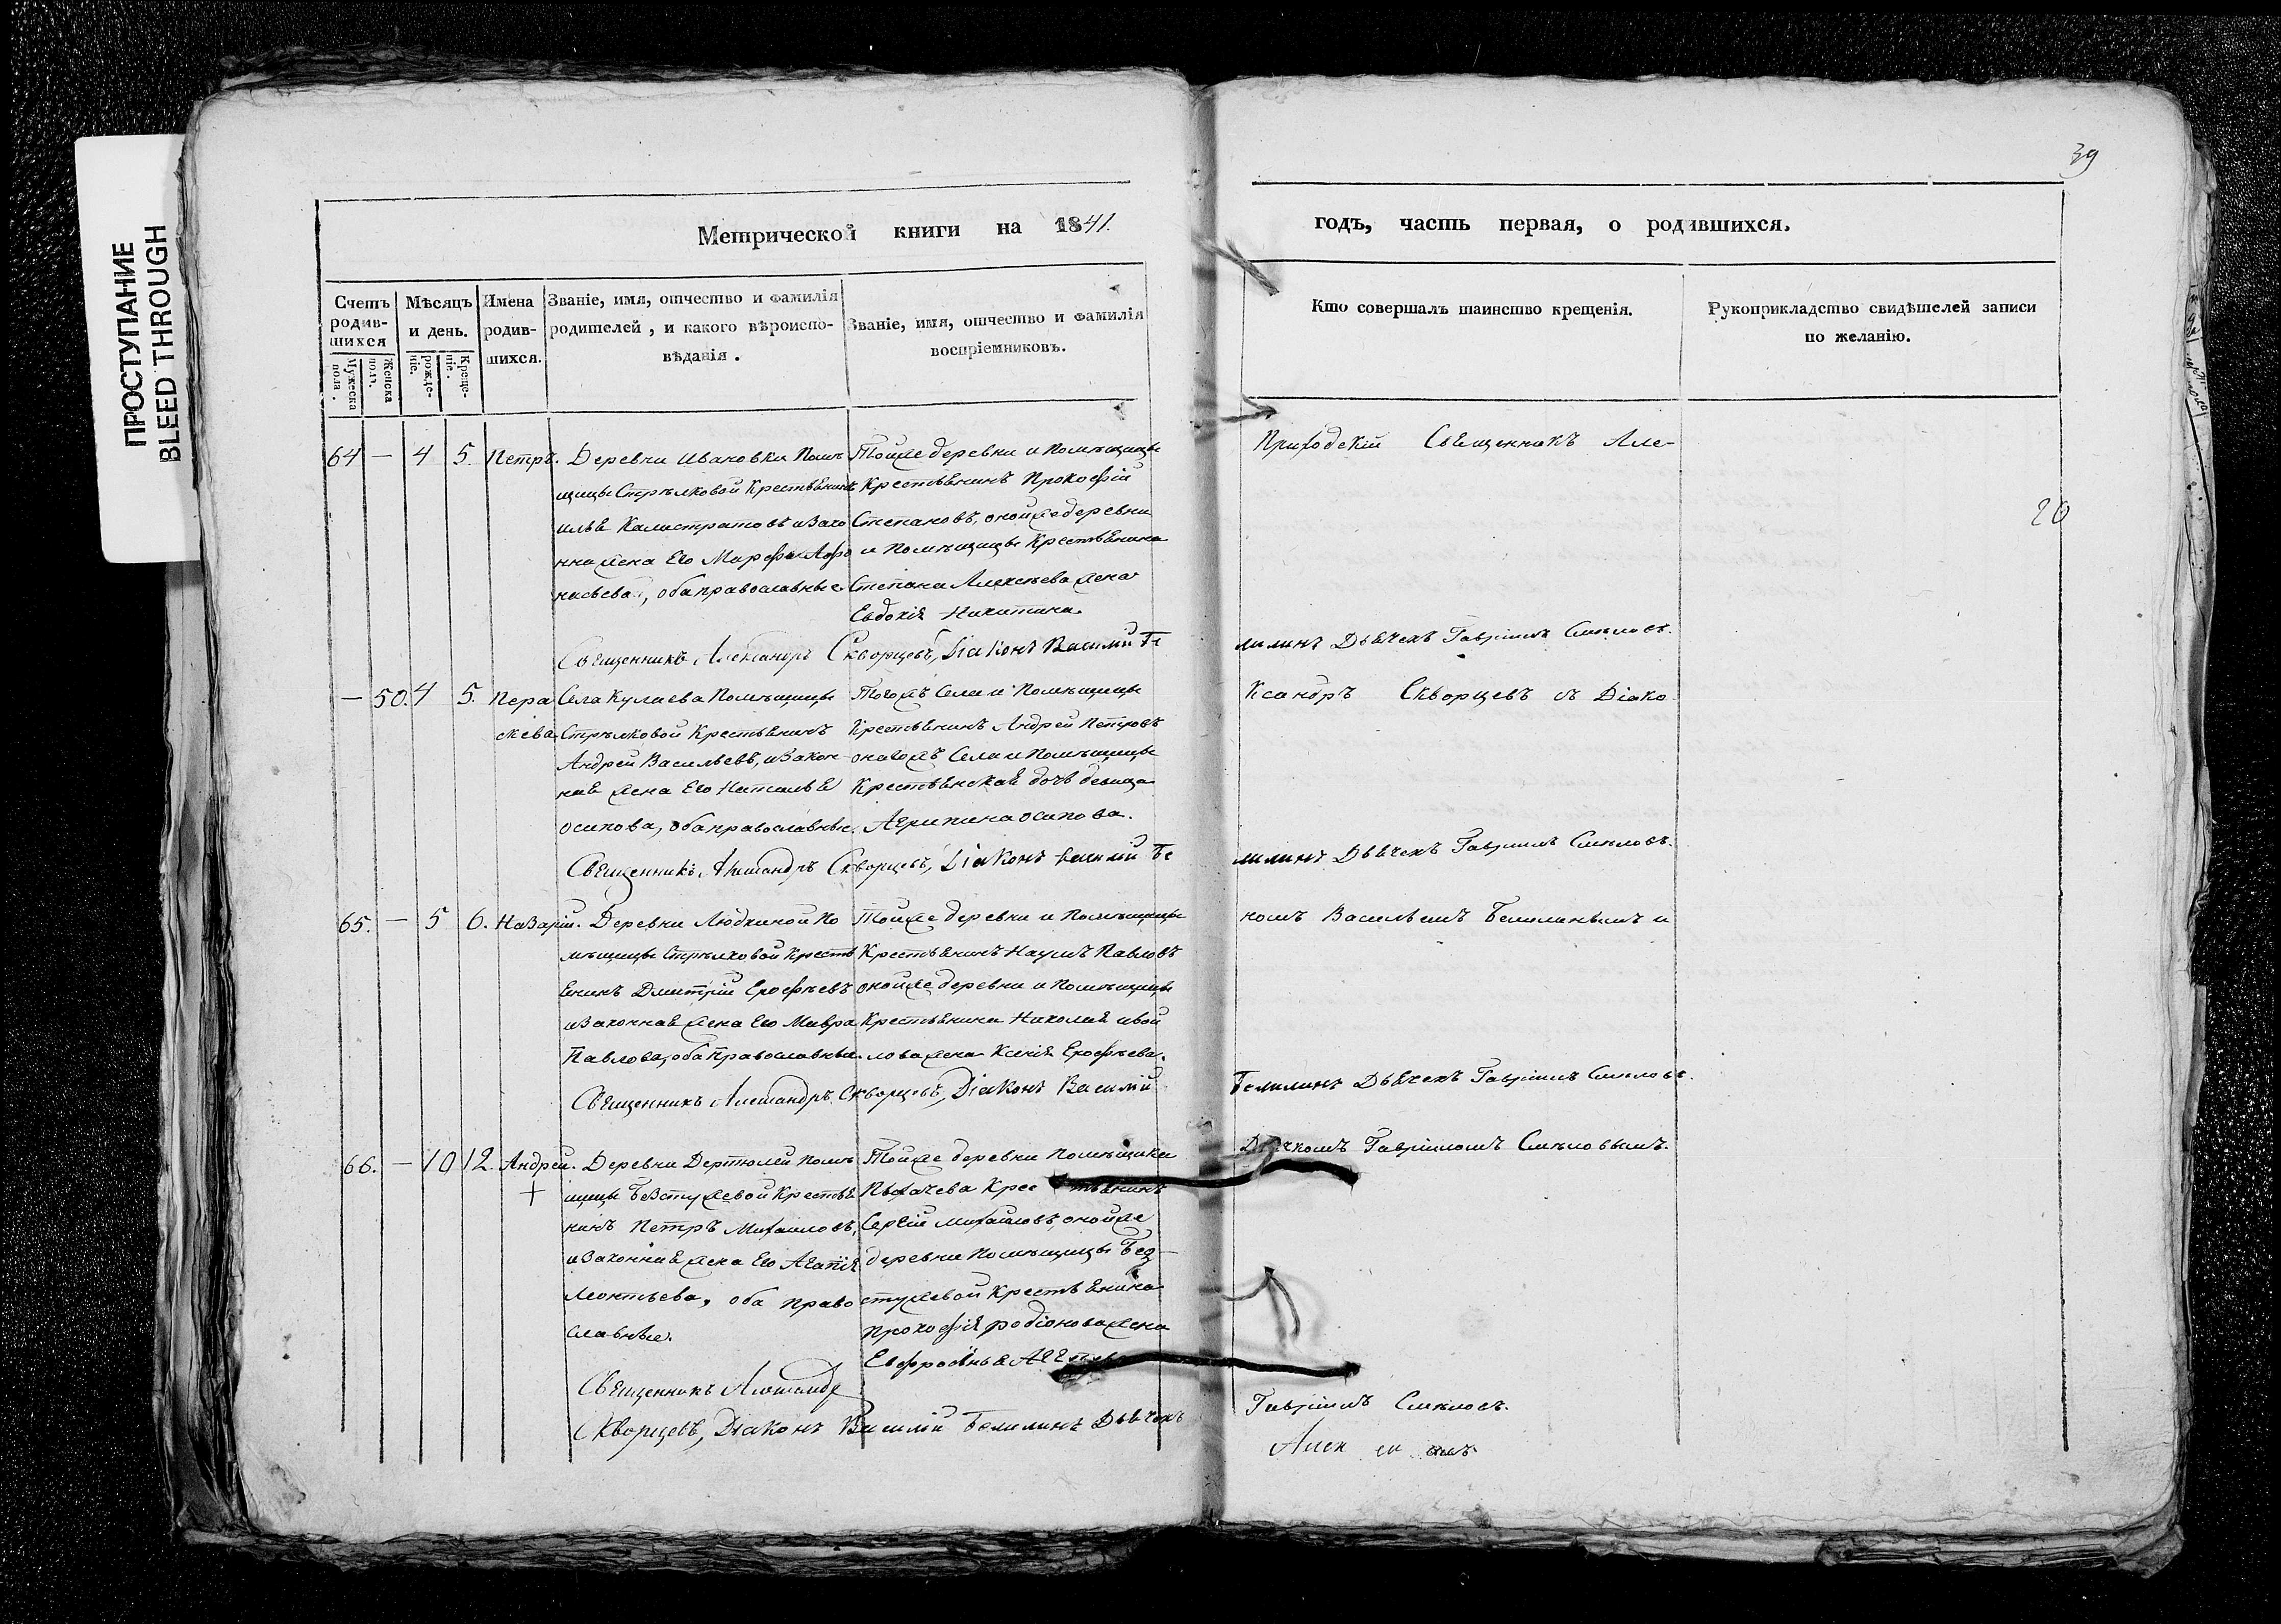 ПРОСТУПАНИЕ
BLEED THROUGH
39
Метрической книги на 1841.
годъ, часть первая, о родившихся.
Счетъ родив-шихся
Мужеска пола.
Женска пола.
Мѣсяцъ и день.
рожде-ніе.
Креще-ніе.
Имена родив-шихся.
Званіе, имя, отчество и фамилія родителей, и какого вѣроиспо-вѣданія.
Званіе, имя, отчество и фамилія воспріемниковъ.
Кто совершалъ таинство крещенія.
Рукоприкладство свидѣтелей записи по желанію.
64 — 4 5. Петръ.
Деревни Ивановки Помѣ
щицы Стрѣлковой Крестьянинъ
Илья Калистратовъ и Зако
нна жена Его Марфа Афо
насьева, оба православные
Тойже деревни и Помѣщицы
Крестьянинъ Прокофій
Степановъ, онойже деревни
и Помѣщицы Крестьянина
Степана Алексѣева жена
Евдокія Никитина.
Священникъ Александръ Скворцовъ, Діаконъ Василій Бе
лилинъ Дьячекъ Гавріилъ Смѣловъ.
— 50. 4 5. Пера
скева.
Села Кулаева Помѣщицы
Стрѣлковой Крестьянинъ
Андрей Васильевъ, и Закон
ная жена Его Наталья
Осипова, оба православные.
Тогожъ Села и Помѣщицы
Крестьянинъ Андрей Петровъ
онагожъ Села и Помѣщицы
Крестьянская дочь девица
Агрипина Осипова.
Священникъ Александръ Скворцевъ, Діаконъ Василій Бе
лилинъ Дьячекъ Гавріилъ Смѣловъ.
65. — 5 6. Назарій.
Деревни Людкиной По
мѣщицы Стрѣлковой Кресть
янинъ Дмитрій Ерофѣевъ
и Законная жена Его Мавра
Павлова, оба Православные.
Тойже деревни и Помѣщицы
Крестьянинъ Наумъ Павловъ
онойже деревни и Помѣщицы
Крестьянина Николая
жена Ксенія Ерофѣева.
Священникъ Александръ Скворцевъ, Діаконъ Василій
Белилинъ Дьячекъ Гавріилъ Смѣловъ.
66. — 10 12. Андрей.
+
Деревни Дертюлей Помѣ
щицы Безстужевой Крестья
нинъ Петръ Михайловъ,
и Законная жена Его Агапія
Леонтьева, оба право
славные.
Тойже деревни Помѣщика
Крестьянинъ
Сергій Михайловъ, онойже
деревни Помѣщицы Без
стужевой Крестьянина
Прокофія Родіонова жена
Евфросинья
Священникъ Александръ
Скворцевъ, Діаконъ Василій Белилинъ Дьячекъ
Гавріилъ Смѣловъ.
Приходскій Священникъ Але-
20
ксандръ Скворцевъ съ Діако
номъ Васильемъ Белилинымъ и
Дьячкомъ Гавріиломъ Смѣловымъ.